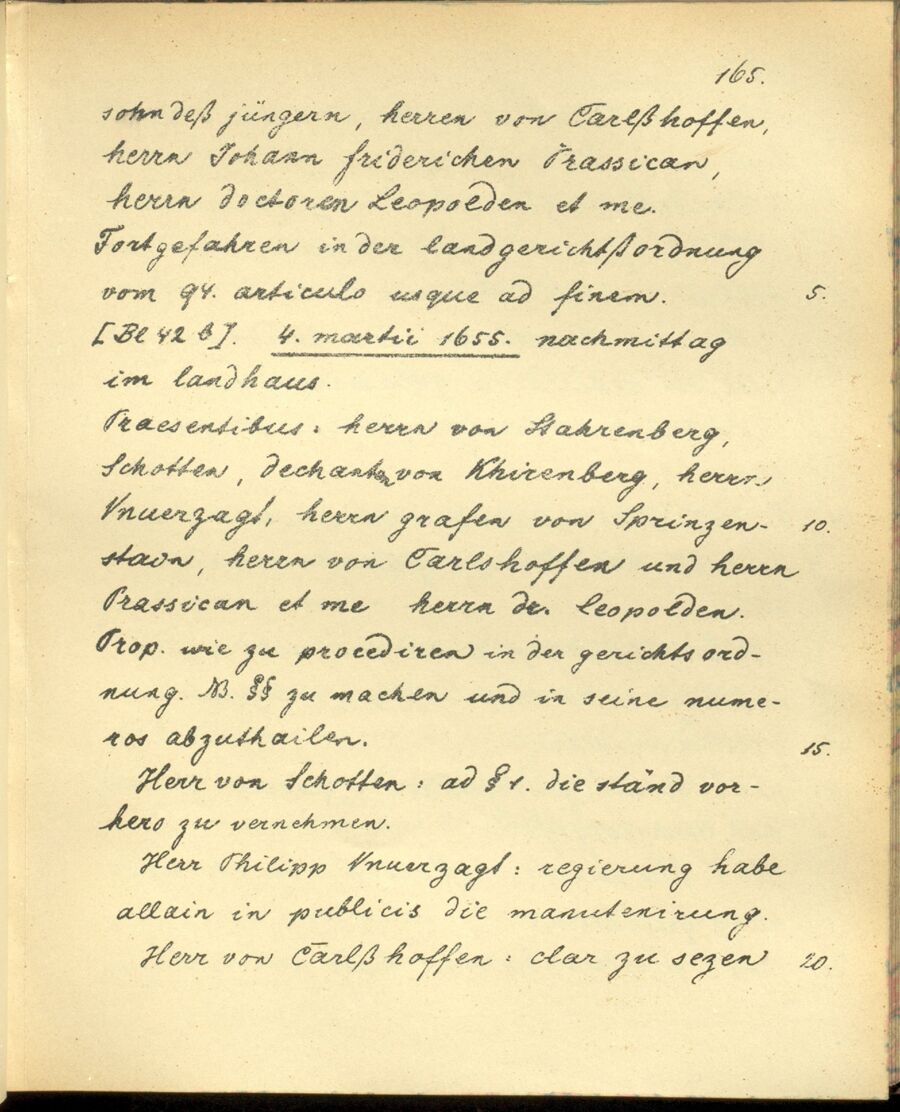 165.
sohn deß jüngern, herren von Carlßhoffen,
herrn Johann friderichen Prassican,
herrn doctoren Leopolden et me.
Fortgefahren in der landgerichtßordnung
vom 94. articulo usque ad finem. 5.
[Bl 42 b]. 4. martii 1655. nachmittag
im landhaus.
Praesentibus: herrn von Stahrenberg,
Schotten, dechanten von Khirenberg, herrn
Vnuerzagt, herrn grafen von Sprinzen- 10.
stain, herrn von Carlshoffen und herrn
Prassican et me herrn dr. Leopolden.
Prop. wie zu procediren in der gerichtsord-
nung. NB. §§ zu machen und in seine nume-
ros abzuthailen. 15.
Herr von Schotten: ad § 1. die ständ vor-
hero zu vernehmen.
Herr Philipp Vnuerzagt: regierung habe
allain in publicis die manutenirung.
Herr von Carlßhoffen: clar zu sezen 20.